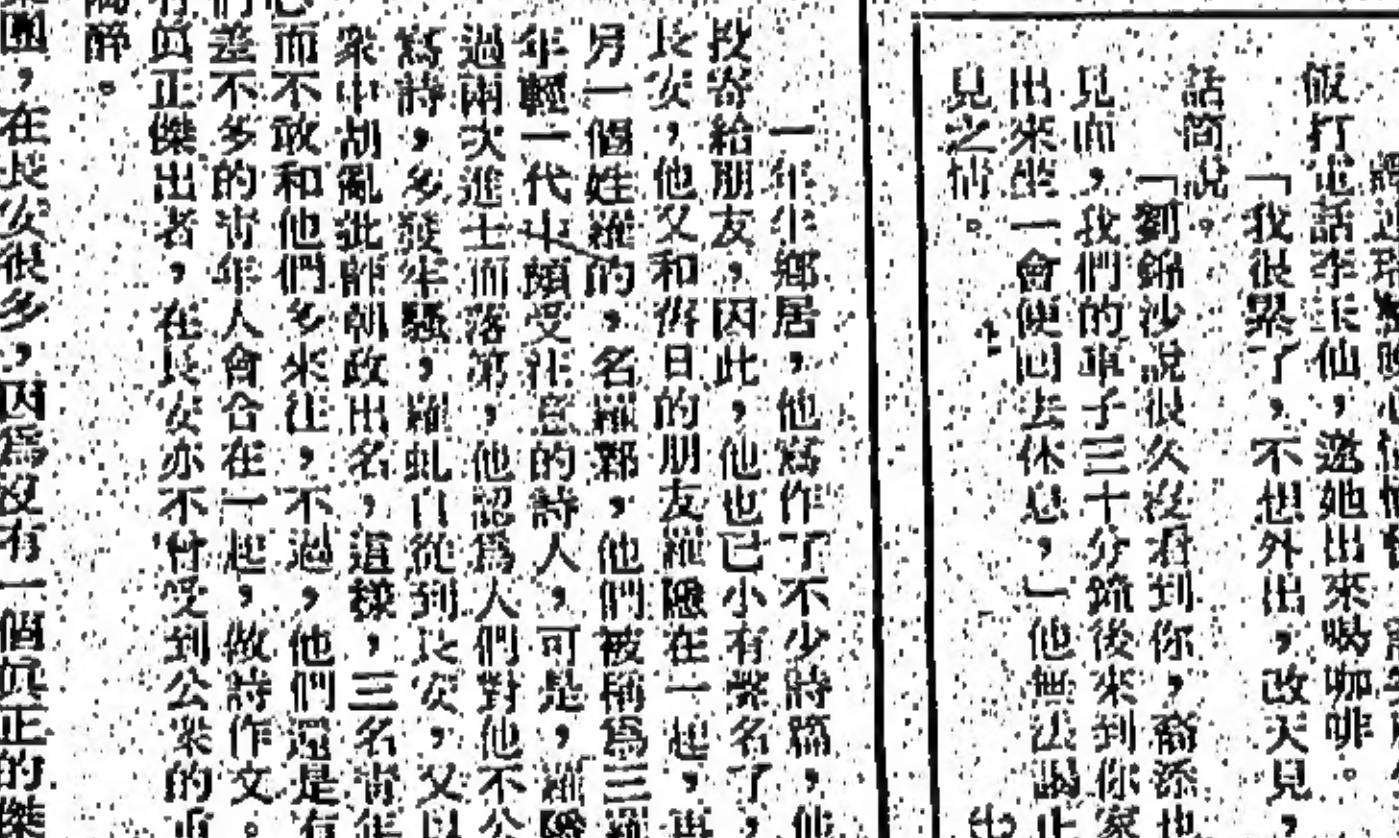 飯打電話李玉仙，邀她出來喝咖啡。
「我很累了，不想外出，改天見，
話簡說。
「劉錦沙說很久沒看到你，喬添也
見面，我們的車子三十分鐘後來到你家
出來坐一會便回去休息，」他無法遏止
見之情。
一年半鄉居，他寫作了不少詩篇，他
投寄給朋友，因此，他也已小有譽名了，
長安，他又和舊日的朋友羅隱在一起，再
另一個姓羅的，名羅鄴，他們被稱爲三羅
年輕一代中頗受注意的詩人，可是，羅隱
過兩次進士而落第，他認爲人們對他不公
寫詩，多發牢騷，羅虬自從到長安，又以
衆中胡亂批評朝政出名，這樣，三名青年
而不敢和他們多來往，不過，他們還是有
們差不多的青年人會合在一起，做詩作文。
有眞正傑出者，在長安亦不會受到公衆的重
醉。
團，在長安很多，因爲沒有一個眞正的傑